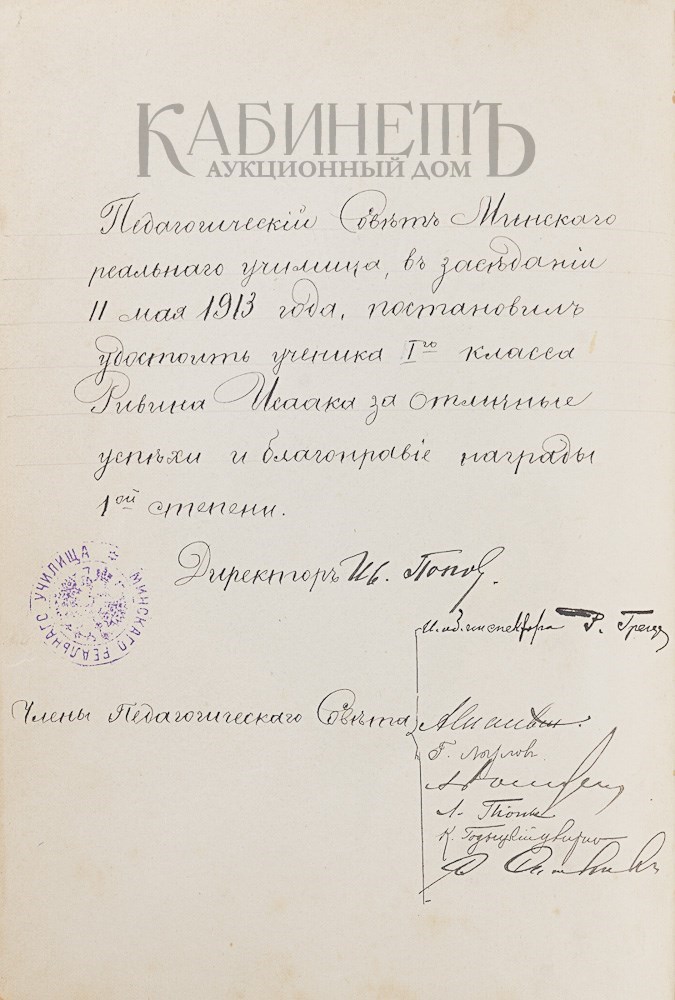 КАБИНЕТЪ
АУКЦИОННЫЙ ДОМ
Педагогическій Совѣтъ Минскаго
реальнаго училища, въ засѣданіи
11 мая 1913 года, постановилъ
удостоить ученика Iго класса
Ривина Исаака за отличные
успѣхи и благонравіе награды
1ой степени.
Директоръ Ив. Попов.
МИНСКАГО РЕАЛЬНАГО УЧИЛИЩА
И. об. инспектора Р.
Члены Педагогическаго Совѣта
Г.
Л.
К.